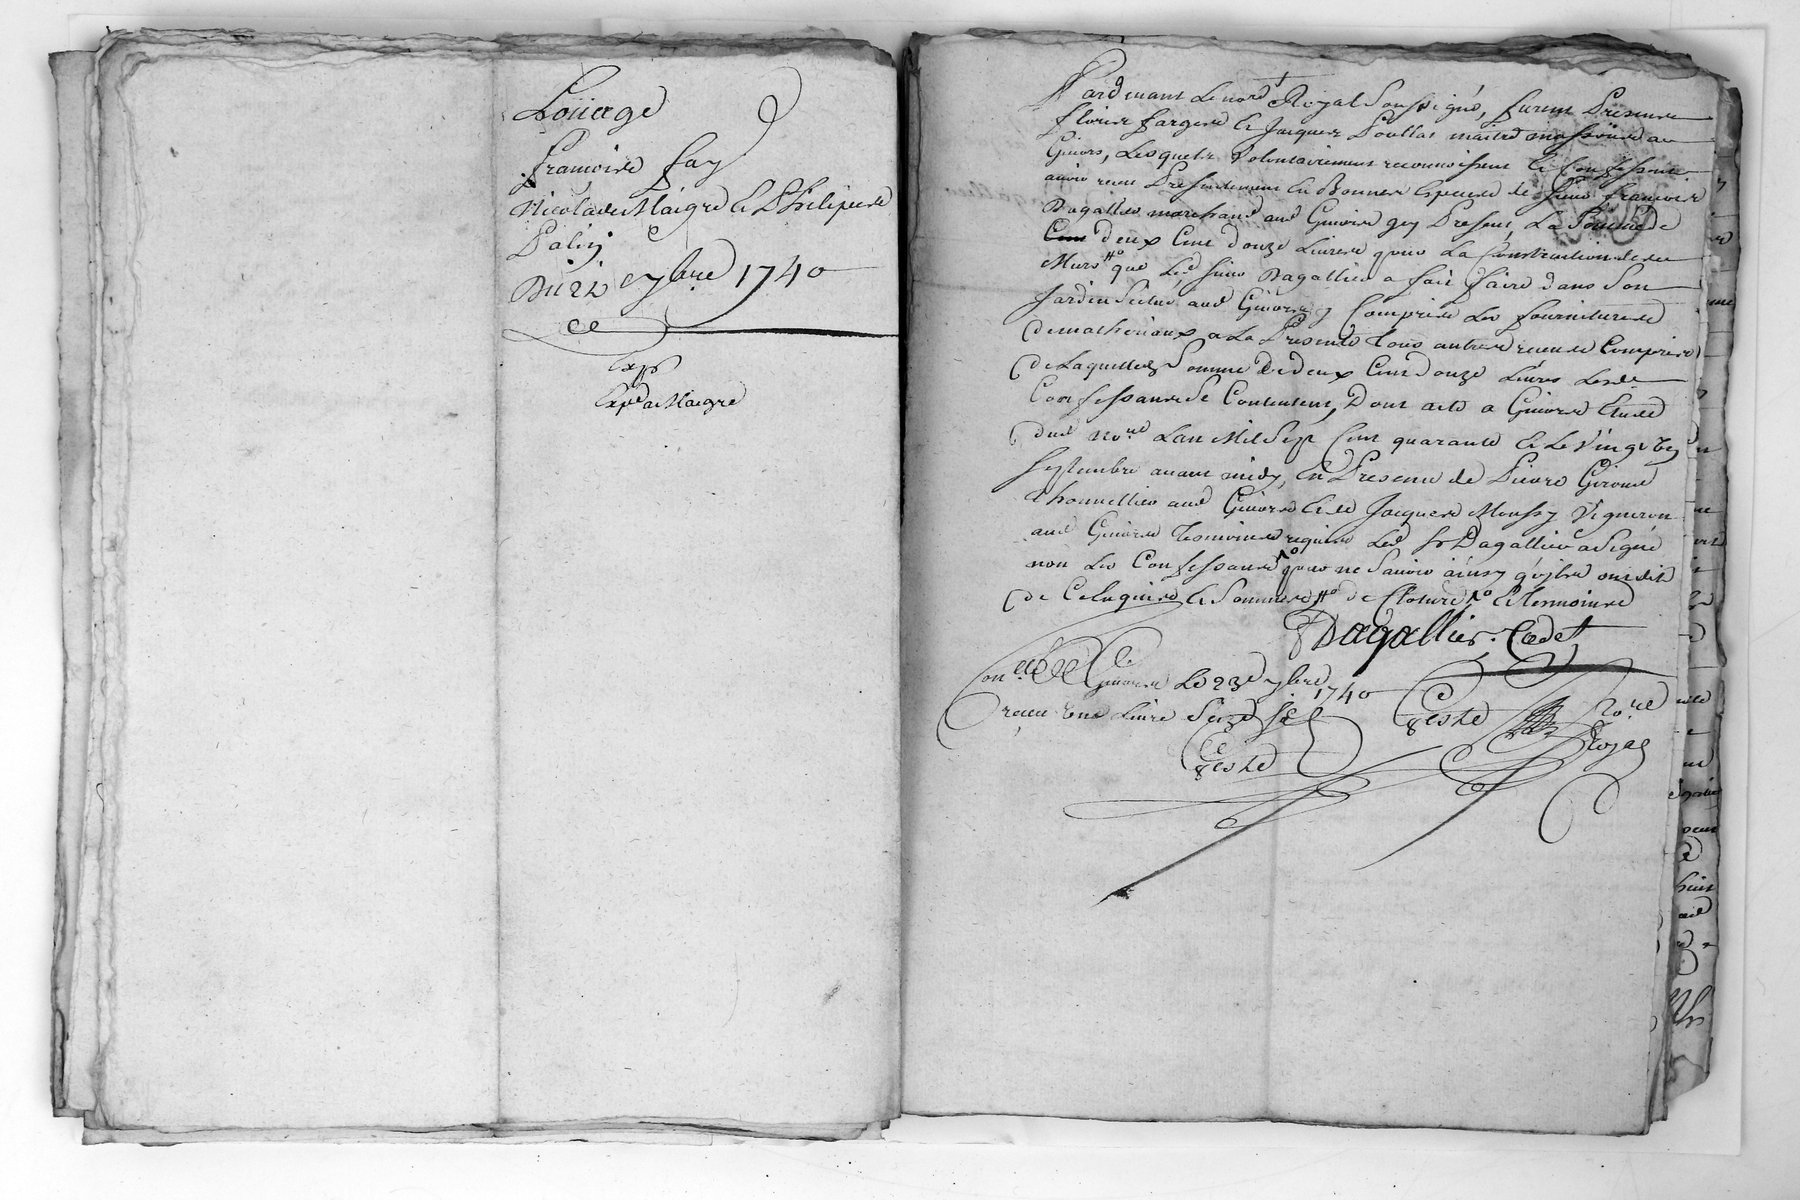 Loüage
françoise fay
Nicolas Maigre & Philipe
Palin
Du 22e 7bre 1740
Expe
Expé a Maigre
Pardevant Le note Royal soussigné, furent Presents
floris farges & Jacques Poullat maitres massons de
Givors, Lesquels volontairement reconnoissent & Confessent
avoir receu Presentement En Bonnes Especes de sieur françois
Dagallier marchand aud Givors icy Present, La somme de
deux Cent douze Livres pour La Construction des
Murs que Led sieur Dagallier a fait faire dans son
Jardin scitué aud Givors y Compris Les fournitures
de matheriaux a La Presente tous autres receus Compris
de Laquelle somme de deux Cent douze Livres Lesd
Confessants se Contentent, Dont acte a Givors Etude
dud Nore L'an Mil Sept Cent quarante & Le vingt
septembre avant midy, En Presence de Pierre Giroud
thonnellier aud Givors & de Jacques Moussy Vigneron
aud Givors tesmoins requis Led sr Dagallier a signé
non Les Confessants pour ne sçavoir ainsy qu'ils ont dit
de Ce Enquis & sommés de Cloture & tesmoins
Dagallier. Cadet
Conllé a Givors Le 23e 7bre 1740
receu une Livre Seize s
Teste
Teste Nore
Royal